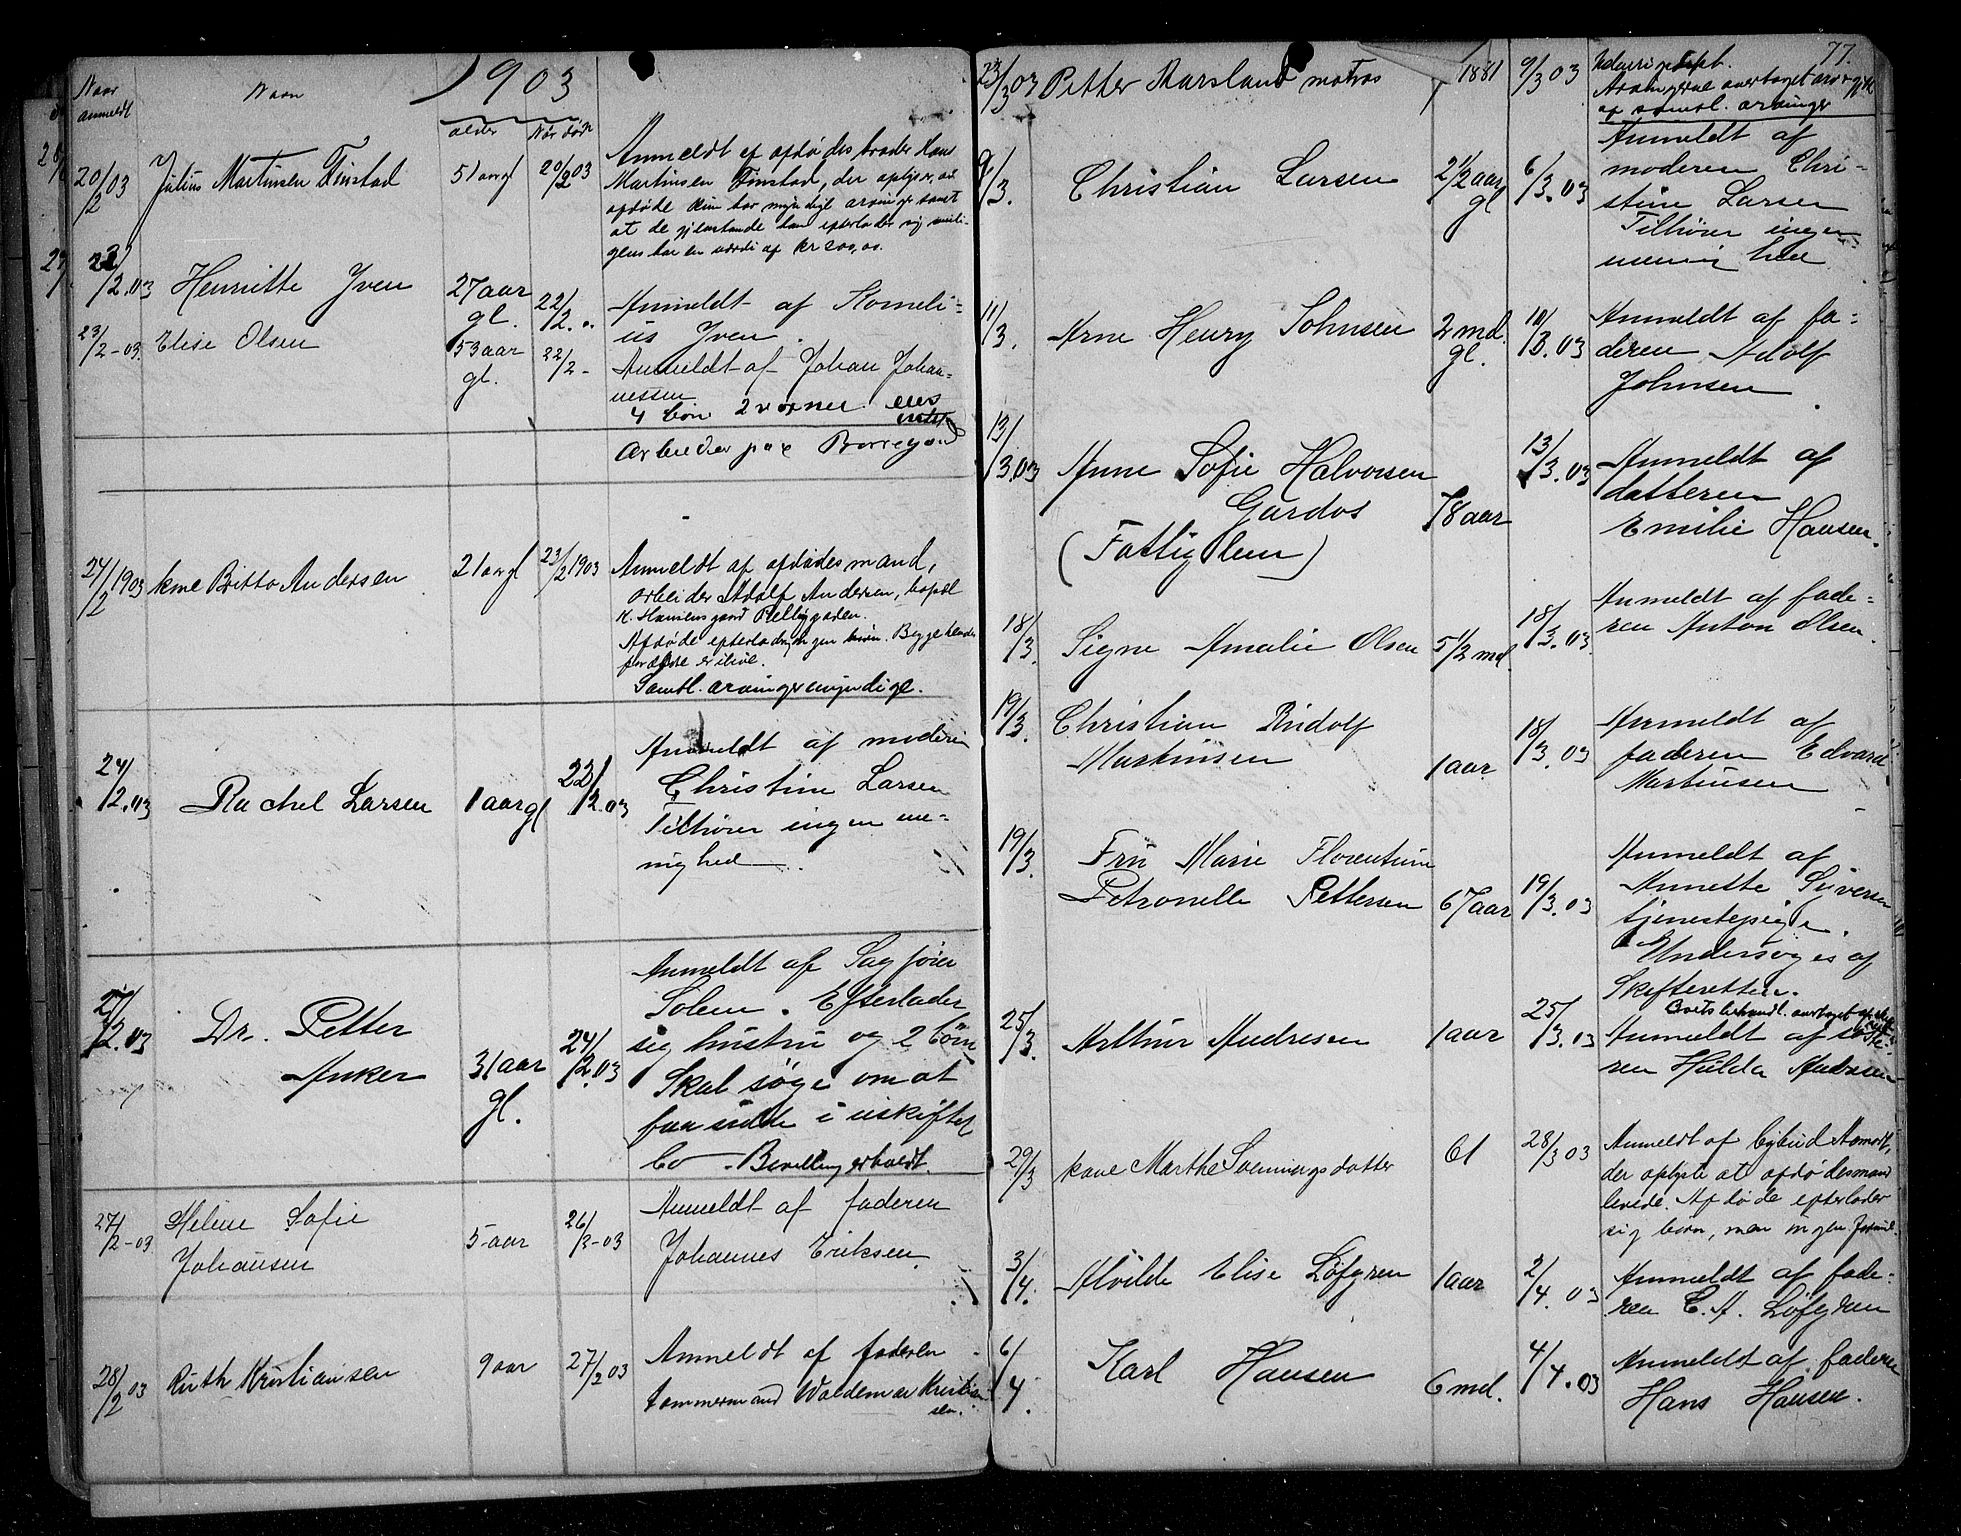 1903
Naar anmeldt
Navn
alder
Når død
20/2 03 Julius Martinsen Finstad 51 aargl 20/2 03
Anmeldt af afdødes broder Hans
Martinsen Finstad, der oplyser, at
afdøde kun har myndige arvinger samt
at de gjenstande han efterlader sig
har en værdi af kr 200,00.
2.03 Henriette Iven 27 aar gl. 22/2
Anmeldt af Korneli-
us Iven.
23/2-03. Elise Olsen 53 aar gl. 22/2-
Anmeldt af Johan Johan-
nessen
4 børn 2 voxne
Arbeider paa Borregaard
24/2 1903 kone Britta Andersen 21 aargl 23/2 1903
Anmeldt af afdødes mand,
arbeider Adolf Andersen, bopæl
Afdøde efterlader ingen børn. Begge hendes
forældre er ilive.
Samtl. arvinger myndige.
24/2.03 Rachel Larsen 1 aargl 22/2.03
Anmeldt af moderen
Christine Larsen
Tilhører ingen me-
nighed
27/2.03 Dr. Petter
Anker 31 aar gl. 24/2.03
Anmeldt af Sagfører
Solem. Efterlader
sig hustru og 2 børn
Skal søge om at
faa sidde i uskiftet
bo - Bevilling erholdt.
27/2-03 Helene Sofie
Johansen 5 aar 26/2-03
Anmeldt af faderen
Johannes Eriksen.
28/2 03 Ruth Kristiansen 9 aar 27/2 03
Anmeldt af faderen
tømmermand Waldemar Kristian-
sen.
77.
23/3 03 Petter Karsland matros 1881 9/3 03
Arvingerne overtaget arv og gjæld
samtl. arvinger
9/3. Christian Larsen 2 1/2 aar gl 6/3.03
Anmeldt af
moderen Chri-
stine Larsen
Tilhører ingen
menig hed
11/3. Arne Henry Johnsen 2 md. gl. 10/3.03
Anmeldt af fa-
deren Adolf
Johnsen
13/3.03 Anne Sofie Halvorsen
Gardos 78 aar 13/3.03
(Fattiglem)
Anmeldt af
datteren
Emilie Hansen.
18/3. Signe Amalie Olsen 5 1/2 md. 18/3.03.
Anmeldt af fade-
ren Anton Olsen.
19/3. Christian Rudolf
Martinsen 1 aar 18/3.03
Anmeldt af
faderen Edvard
Martinsen
19/3. Fru Marie Florentine
Petronelle Pettersen 67 aar 19/3.03
Anmeldt af
Annette Syversen
tjenestepige.
Undersøges af
Skifteretten.
Boets behandl. overtaget af
25/3. Arthur Andresen 1 aar 25/3.03
Anmeldt af søste-
ren Hulda Andresen
29/3 kone Marthe Svenningsdatter 61 28/3 03
Anmeldt af bybud Aamodt,
der oplyste at afdødes mand
levede. Afdøde efterlader
sig børn, men ingen formue.
3/4. Alvilde Elise Løfgren 1 aar 2/4.03
Anmeldt af fade-
ren C. A. Løfgren
6/4. Karl Hansen 6 md. 4/4.03
Anmeldt af faderen
Hans Hansen.